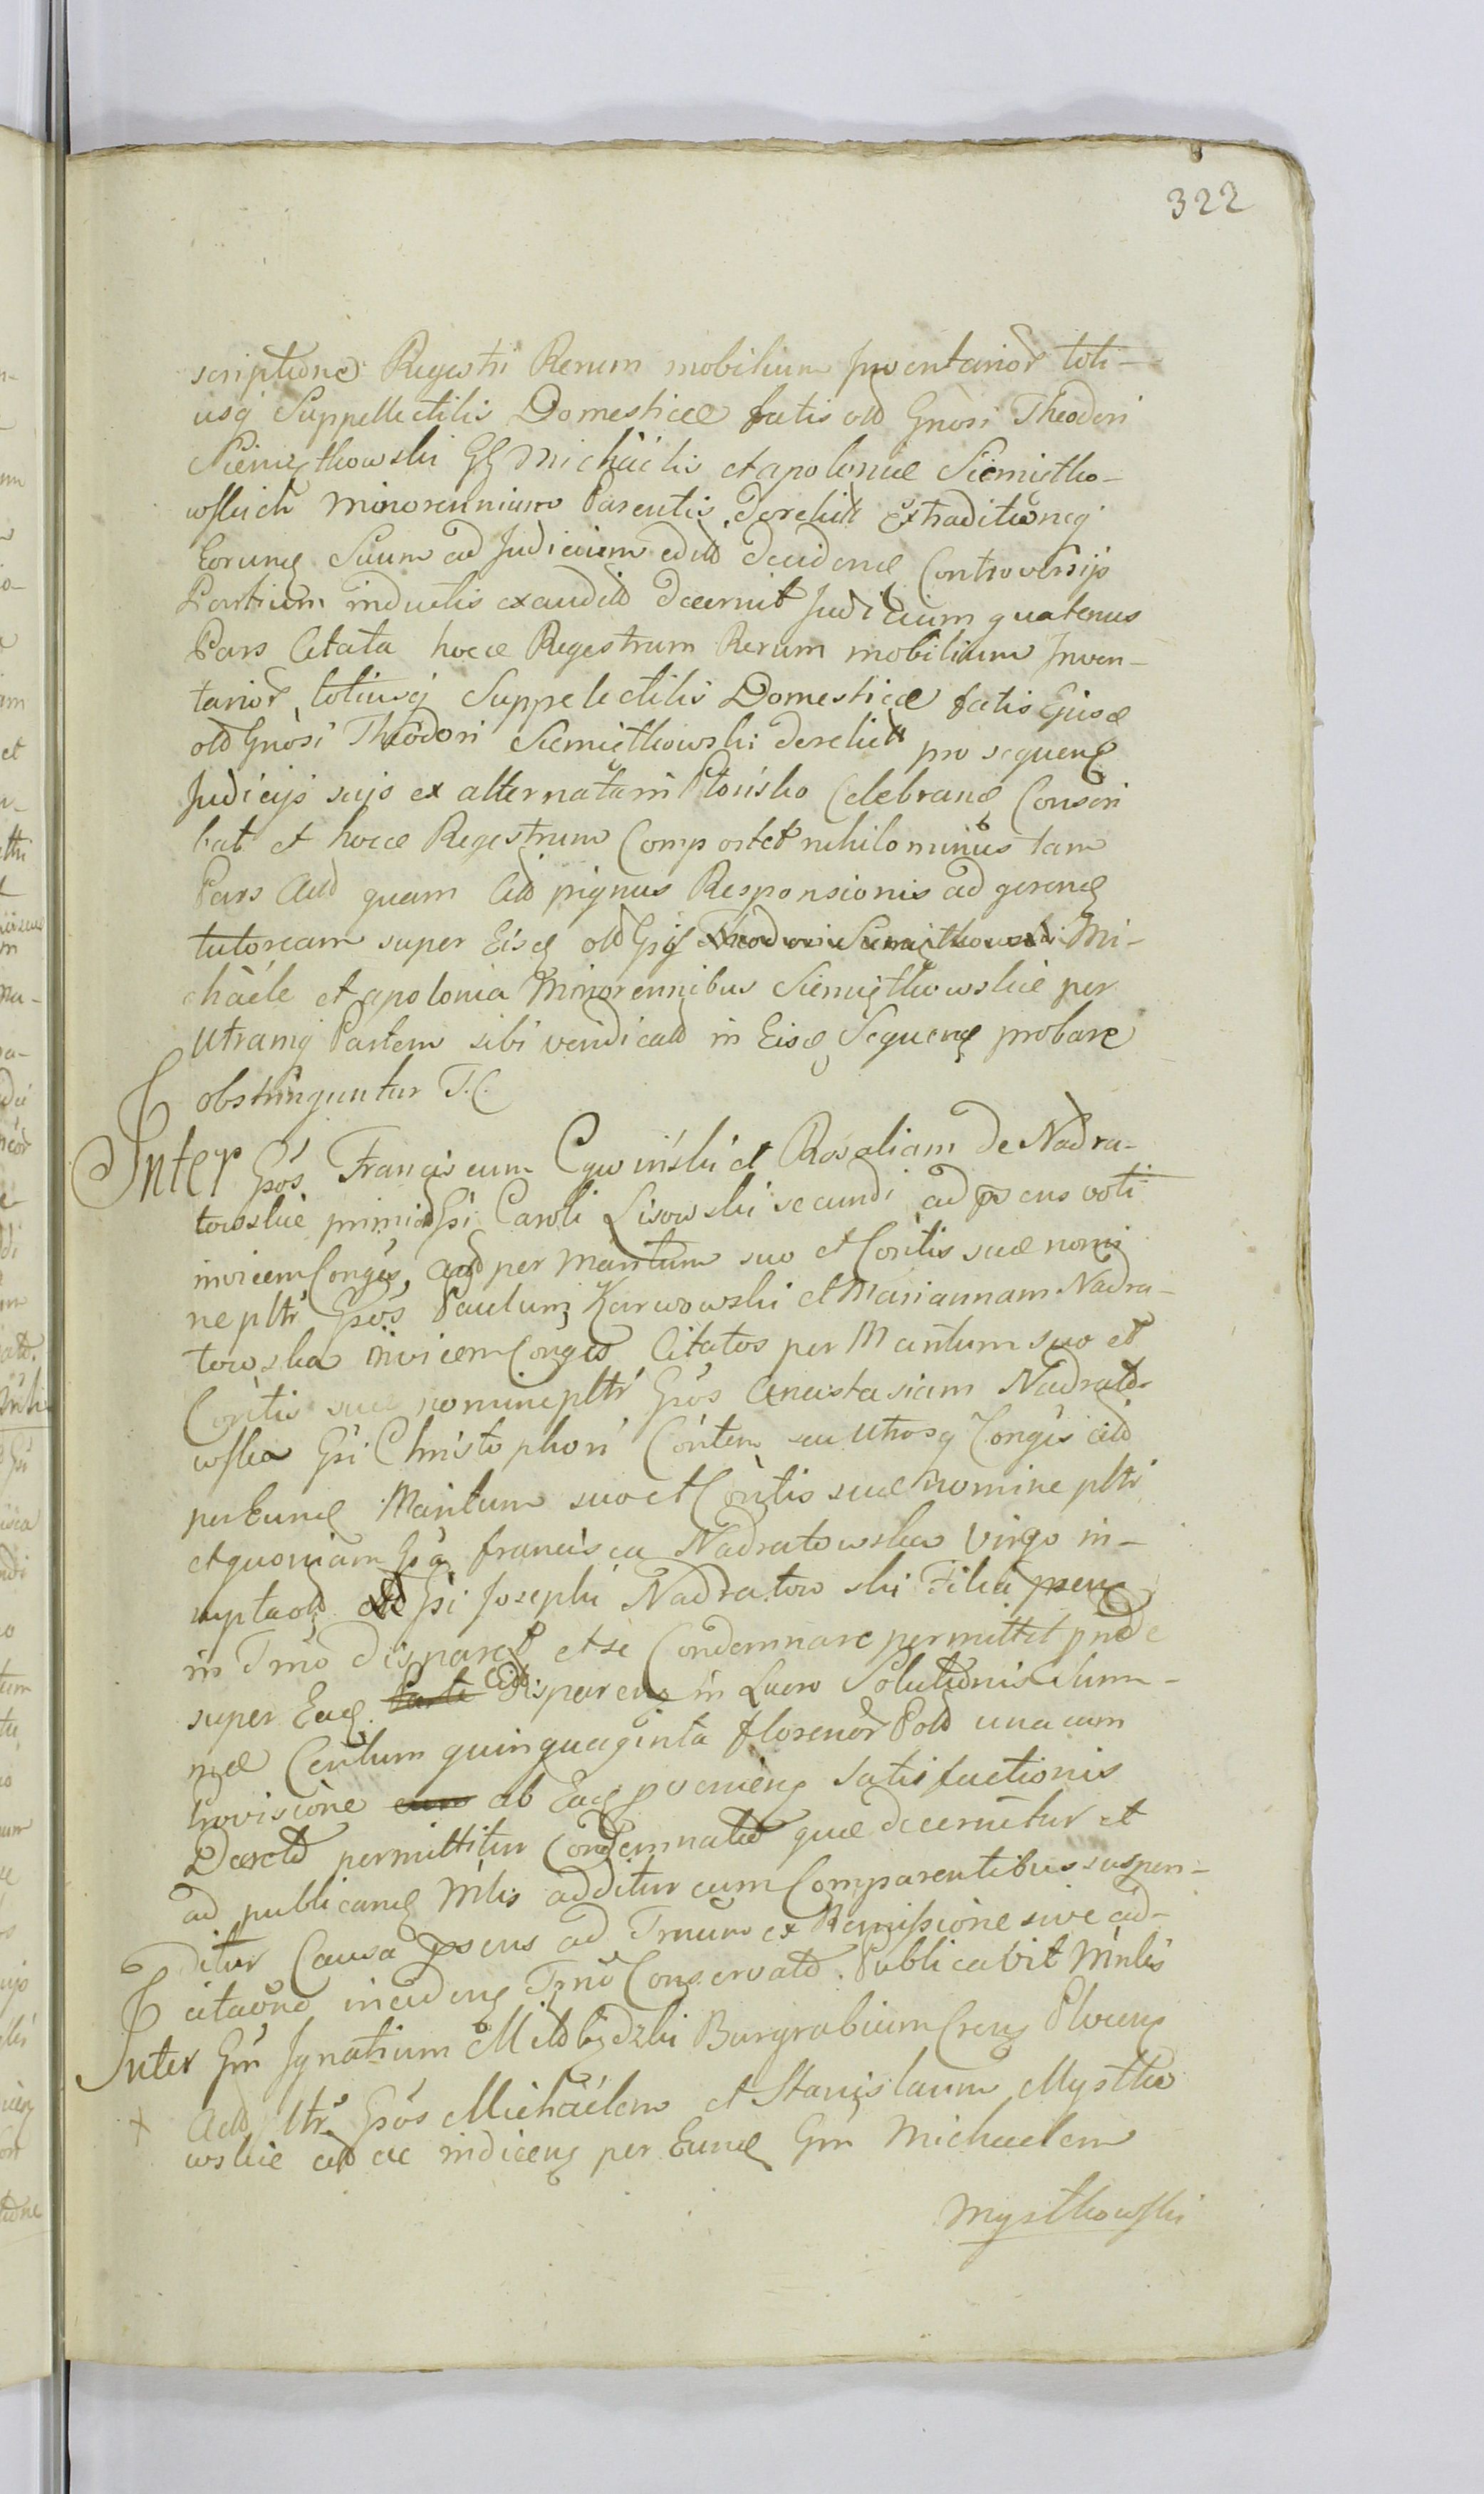 322
scriptione Regestri Rerum mobilium Inventarior toti-
usq Suppellectilis Domesticæ fatis old Gnosi Theodori
Siemiętkowski GG Michäelis et apoloniæ Siemiętko-
wskich Minorennium Parentis derelict Extraditioneq
Eorund Suum ad Judicium edid decidend Controversijs
Partium inductis exaudid decernit Judicium quatenus
Pars Citata hocce Regestrum Rerum mobilium Inven-
tarior totiusq Suppelectilis Domesticæ fatis Ejusd
old Gnosi Theodori Siemiętkowski derelict pro sequens
Judicijs scijs ex alternatam Płońsko Celebrand Conscri
bat et hocce Regestrum Comportet nihilominus tam
Pars Actd quam Citd pignus Responsionis ad gerend
tutoream super Eisd old Gsi Theodori Siemiętkowski Mi-
chäele et apolonia Minorennibus Siemiętkowskie per
Utramq Partem sibi vendicatd in Eisd Sequend probare
obstringuntur T.C.
Inter Gsos Franciscum Cywiński et Rosaliam de Nadra-
towskie primi Gsi Caroli Lisowski secundi ad psens voti
invicem Conges, Actd per Maritum suo et Cortis suæ nomi
ne pltr Gsos Paulum Karwowski et Mariannam Nadra-
towska invicem Conges Citatos per Maritum suo et
Cortis suæ nomine pltr Gsos Anastasiam Nadrato-
wska Gsi Christophori Cortem seu Utrosq Conges citd
per Eund Maritum suo et Cortis suæ nomine pltr
et quoniam Gsa francisca Nadratowska Virgo in-
nupta old Gsi Josephi Nadratowski Filia psens
in Tmo disparet et se Condemnare permittet pnde
super Ead Parte Citd disparens in Lucro Solutionis Sum-
mæ Centum quinquaginta florenor Pold una cum
Provisione cum ab Ead pvenieng satisfactionis
Decretd permittitur Condemnatio quæ decernitur et
ad publicand Mlis additur cum Comparentibus suspen-
ditur Causa psens ad Tmum ex Remissione sive ad-
citaone inciden Tmo Conservatd. Publicavit Minlis
Inter Gm Ignatium Miłobędzki Burgrabium Crens Plocens
+ Actd pltr Gsos Michäelem et Stanislaum Mystko
wskie citd ac indicens per Eund Gm Michaelem
Mystkowski